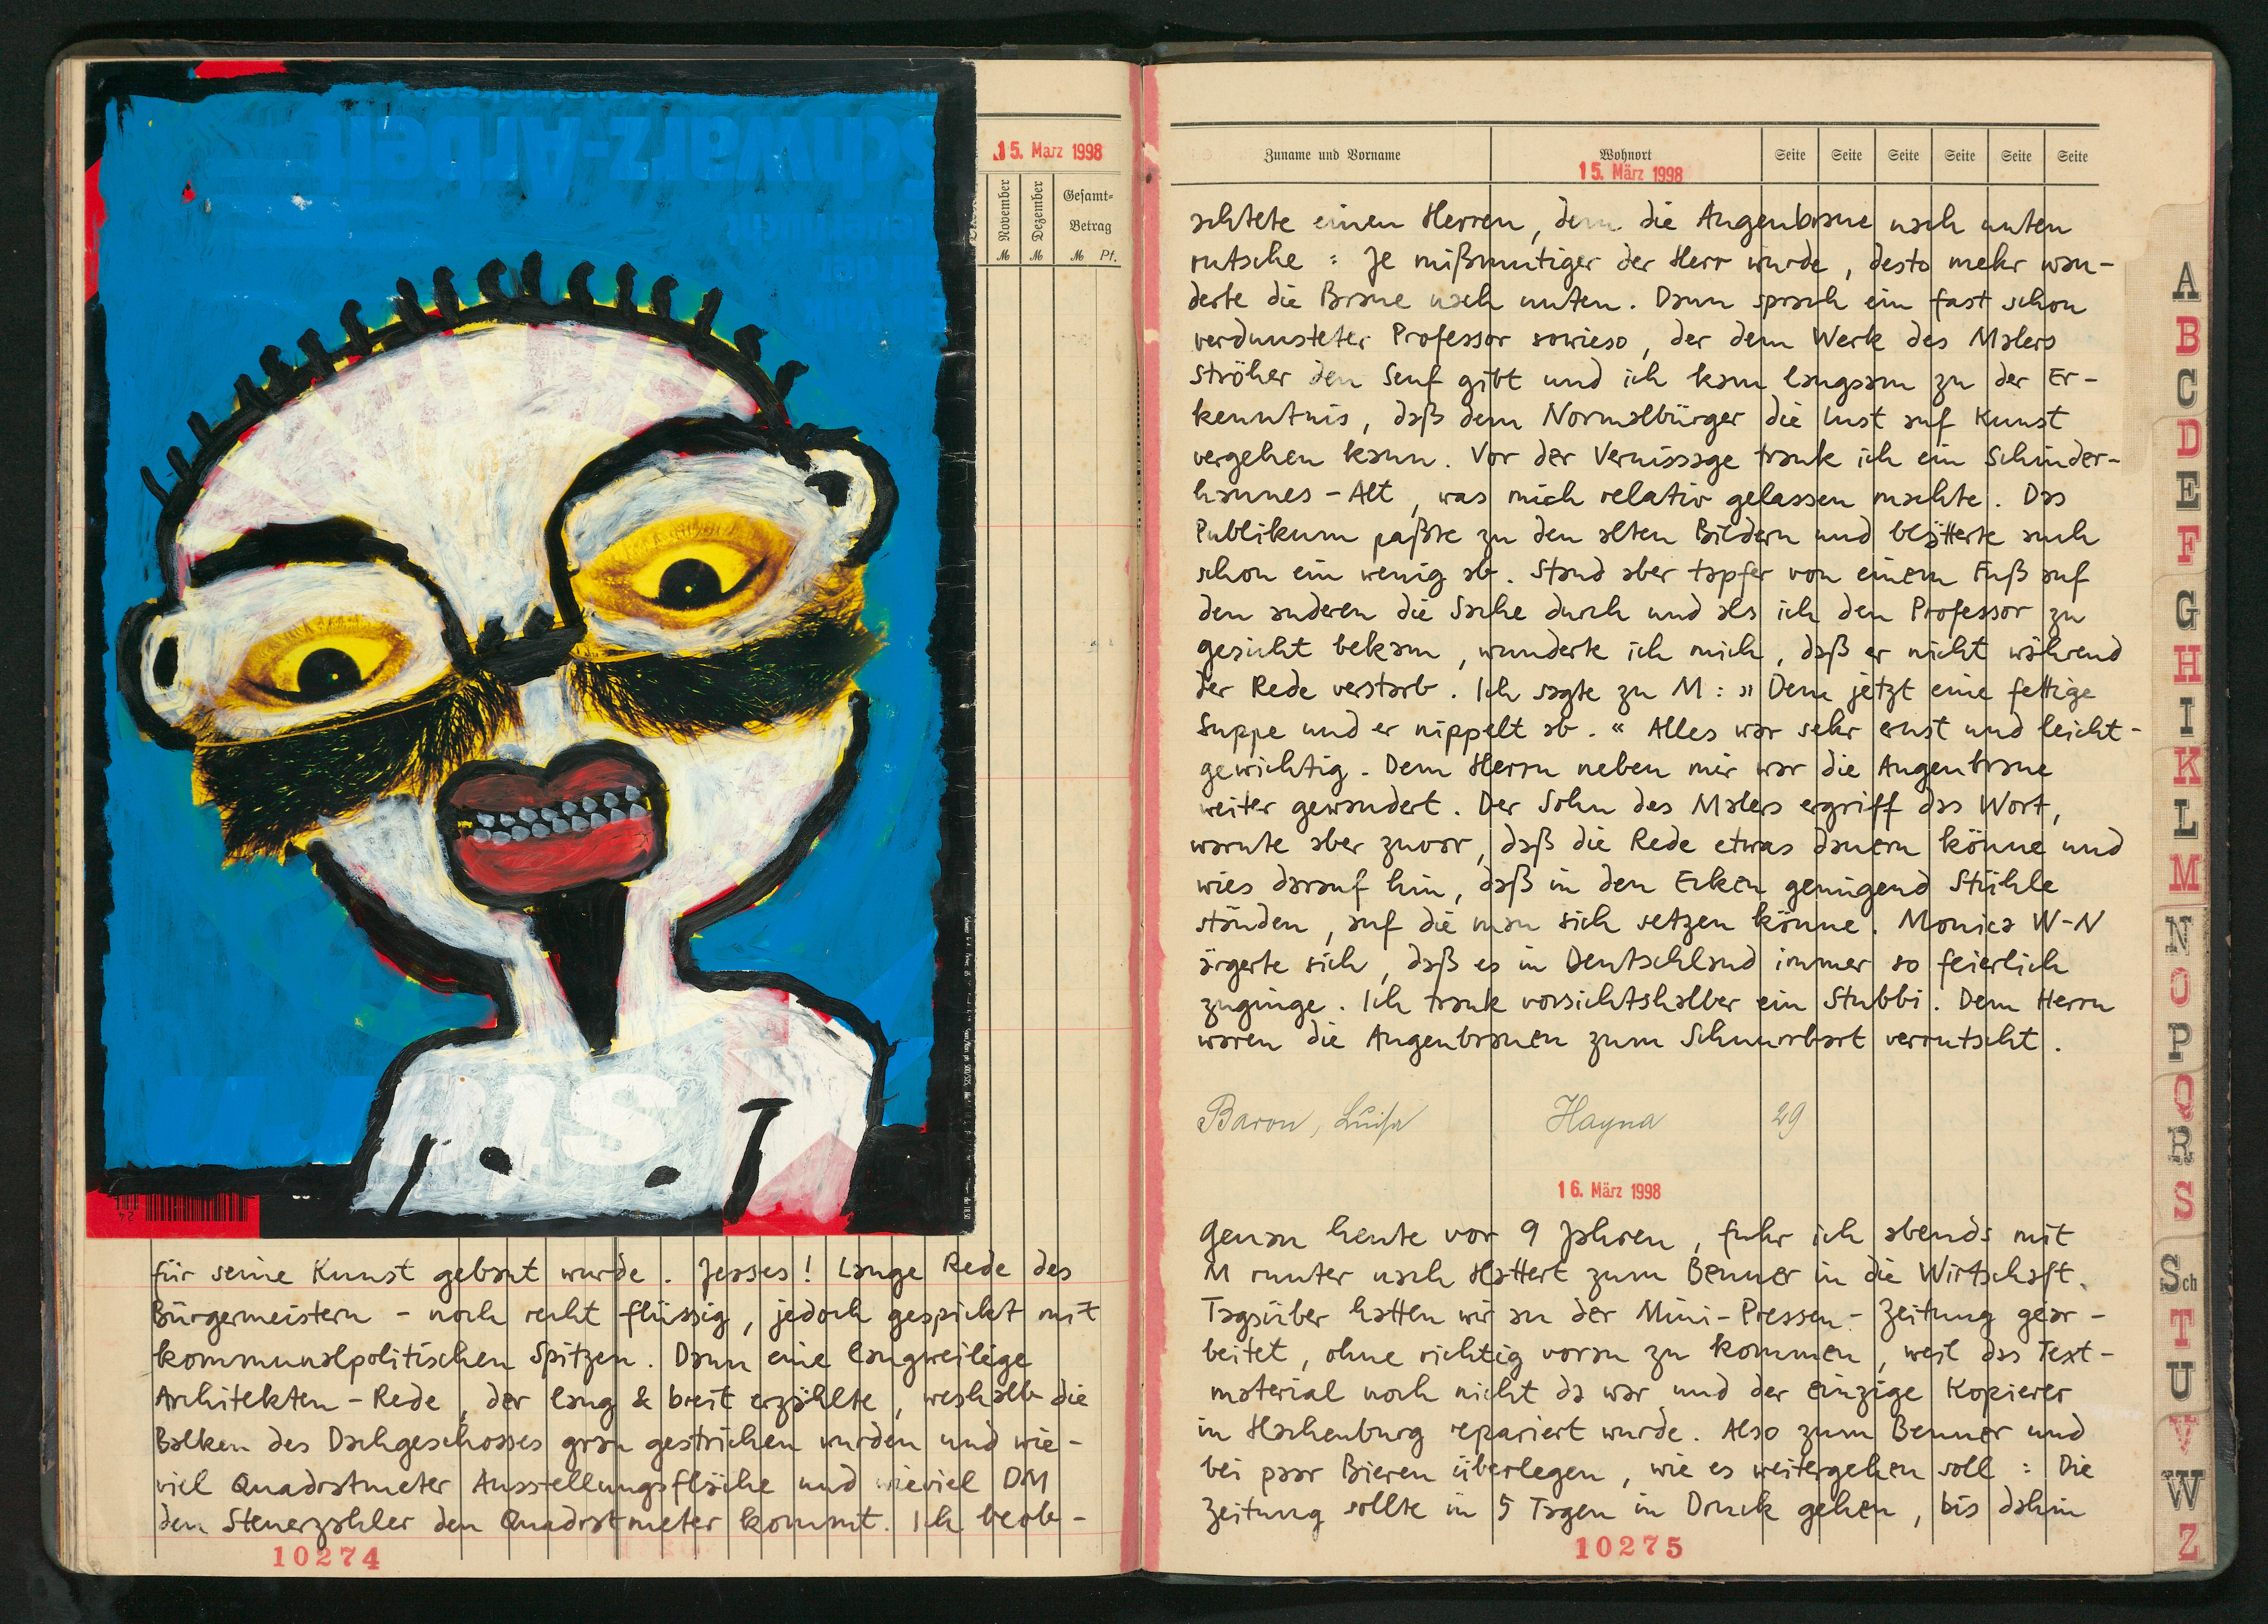 15. März 1998
November
Dezember
Gesamt-
Betrag
M M M Pf.
für seine Kunst gebaut wurde. Jesses! Lange Rede des
Bürgermeistern - noch recht flüssig, jedoch gespickt mit
kommunalpolitischen Spitzen. Dann eine langweilige
Architekten-Rede, der lang & breit erzählte, weshalb die
Balken des Dachgeschosses grau gestrichen wurden und wie-
viel Quadratmeter Ausstellungsfläche und wieviel DM
den Steuerzahler den Quadratmeter kommt. Ich beob-
10274
Zuname und Vorname Wohnort Seite Seite Seite Seite Seite Seite
15. März 1998
achtete einen Herren, dem die Augenbraue nach unten
rutsche: Je mißmutiger der Herr wurde, desto mehr wan-
derte die Braue nach unten. Dann sprach ein fast schon
verdunsteter Professor sowieso, der dem Werk des Malers
Ströher den Senf gibt und ich kam langsam zu der Er-
kenntnis, daß dem Normalbürger die Lust auf Kunst
vergehen kann. Vor der Vernissage trank ich ein Schinder-
hannes-Alt, was mich relativ gelassen machte. Das
Publikum paßte zu den alten Bildern und blätterte auch
schon ein wenig ab. Stand aber tapfer von einem Fuß auf
den anderen die Sache durch und als ich den Professor zu
gesicht bekam, wunderte ich mich, daß er nicht während
der Rede verstarb. Ich sagte zu M: »Dem jetzt eine fettige
Suppe und er nippelt ab.« Alles war sehr ernst und leicht-
gewichtig. Dem Herrn neben mir war die Augenbraue
weiter gewandert. Der Sohn des Malers ergriff das Wort,
warnte aber zuvor, daß die Rede etwas dauern könne und
wies darauf hin, daß in den Ecken genügend Stühle
ständen, auf die man sich setzen könne. Monica W-N
ärgerte sich, daß es in Deutschland immer so feierlich
zuginge. Ich trank vorsichtshalber ein Stubbi. Dem Herrn
waren die Augenbrauen zum Schnurrbart verrutscht.
Baron, Luise Hayna 29
16. März 1998
Genau heute vor 9 Jahren, fuhr ich abends mit
M runter nach Hattert zum Benner in die Wirtschaft.
Tagsüber hatten wir an der Mini-Pressen-Zeitung gear-
beitet, ohne richtig voran zu kommen, weil das Text-
material noch nicht da war und der einzige Kopierer
in Hachenburg repariert wurde. Also zum Benner und
bei paar Bieren überlegen, wie es weitergehen soll: Die
Zeitung sollte in 5 Tagen in Druck gehen, bis dahin
10275
A
B
C
D
E
F
G
H
I
K
L
M
N
O
P
Q
R
S
Sch
T
U
V
W
Z